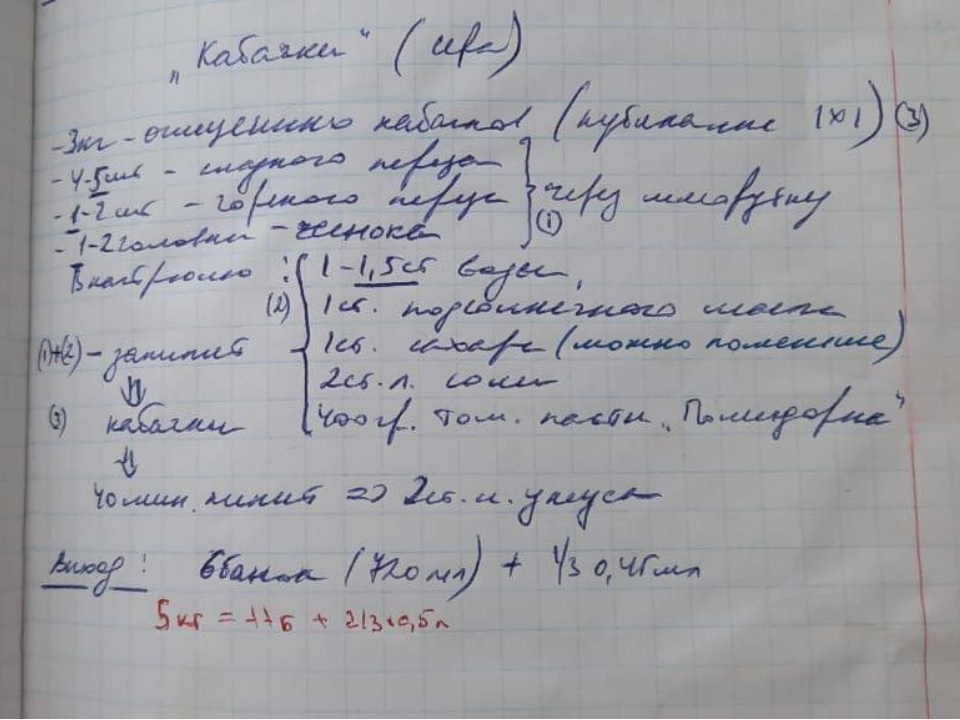 „Кабачки" (икра)
-3кг - очищенных кабачков (кубиками 1х1) (3)
-4-5шт - сладкого перца
-1-2шт - горького перца } через мясорубку (1)
-1-2 головки - чеснока
В кастрюлю : { 1-1,5ст воды,
(2) 1ст. подсолнечного масла
(1)+(2) - закипит 1ст. сахара (можно поменьше)
2ст.л. соли
(3) кабачки 400гр. том. пасты „Помидорка"
40мин. кипит => 2ст.л. уксуса
Выход: 6банок (720мл) + 1/3 0,45мл
5кг = 11б + 2/3×0,5л